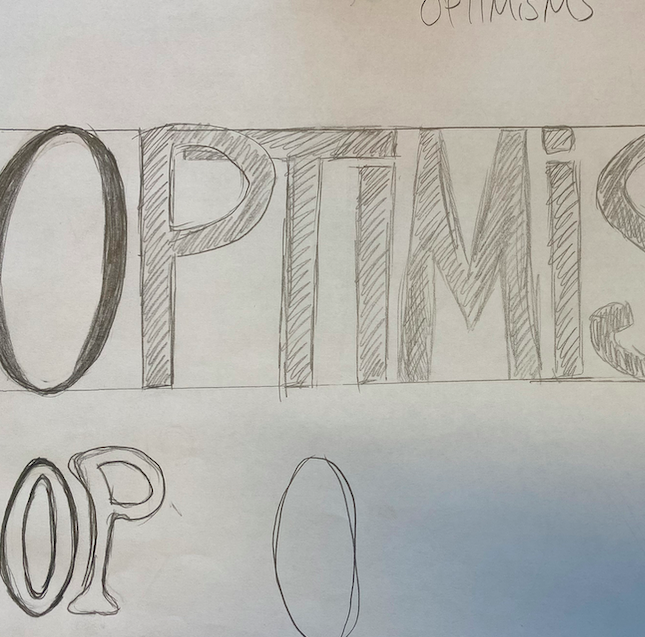 OPTIMiSMS
OPTIMiS
OP O